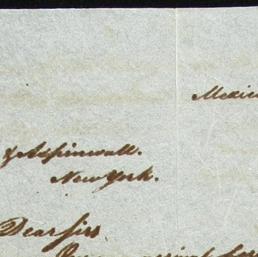 Mexic
& Aspinwall.
New York.
Dear Sirs